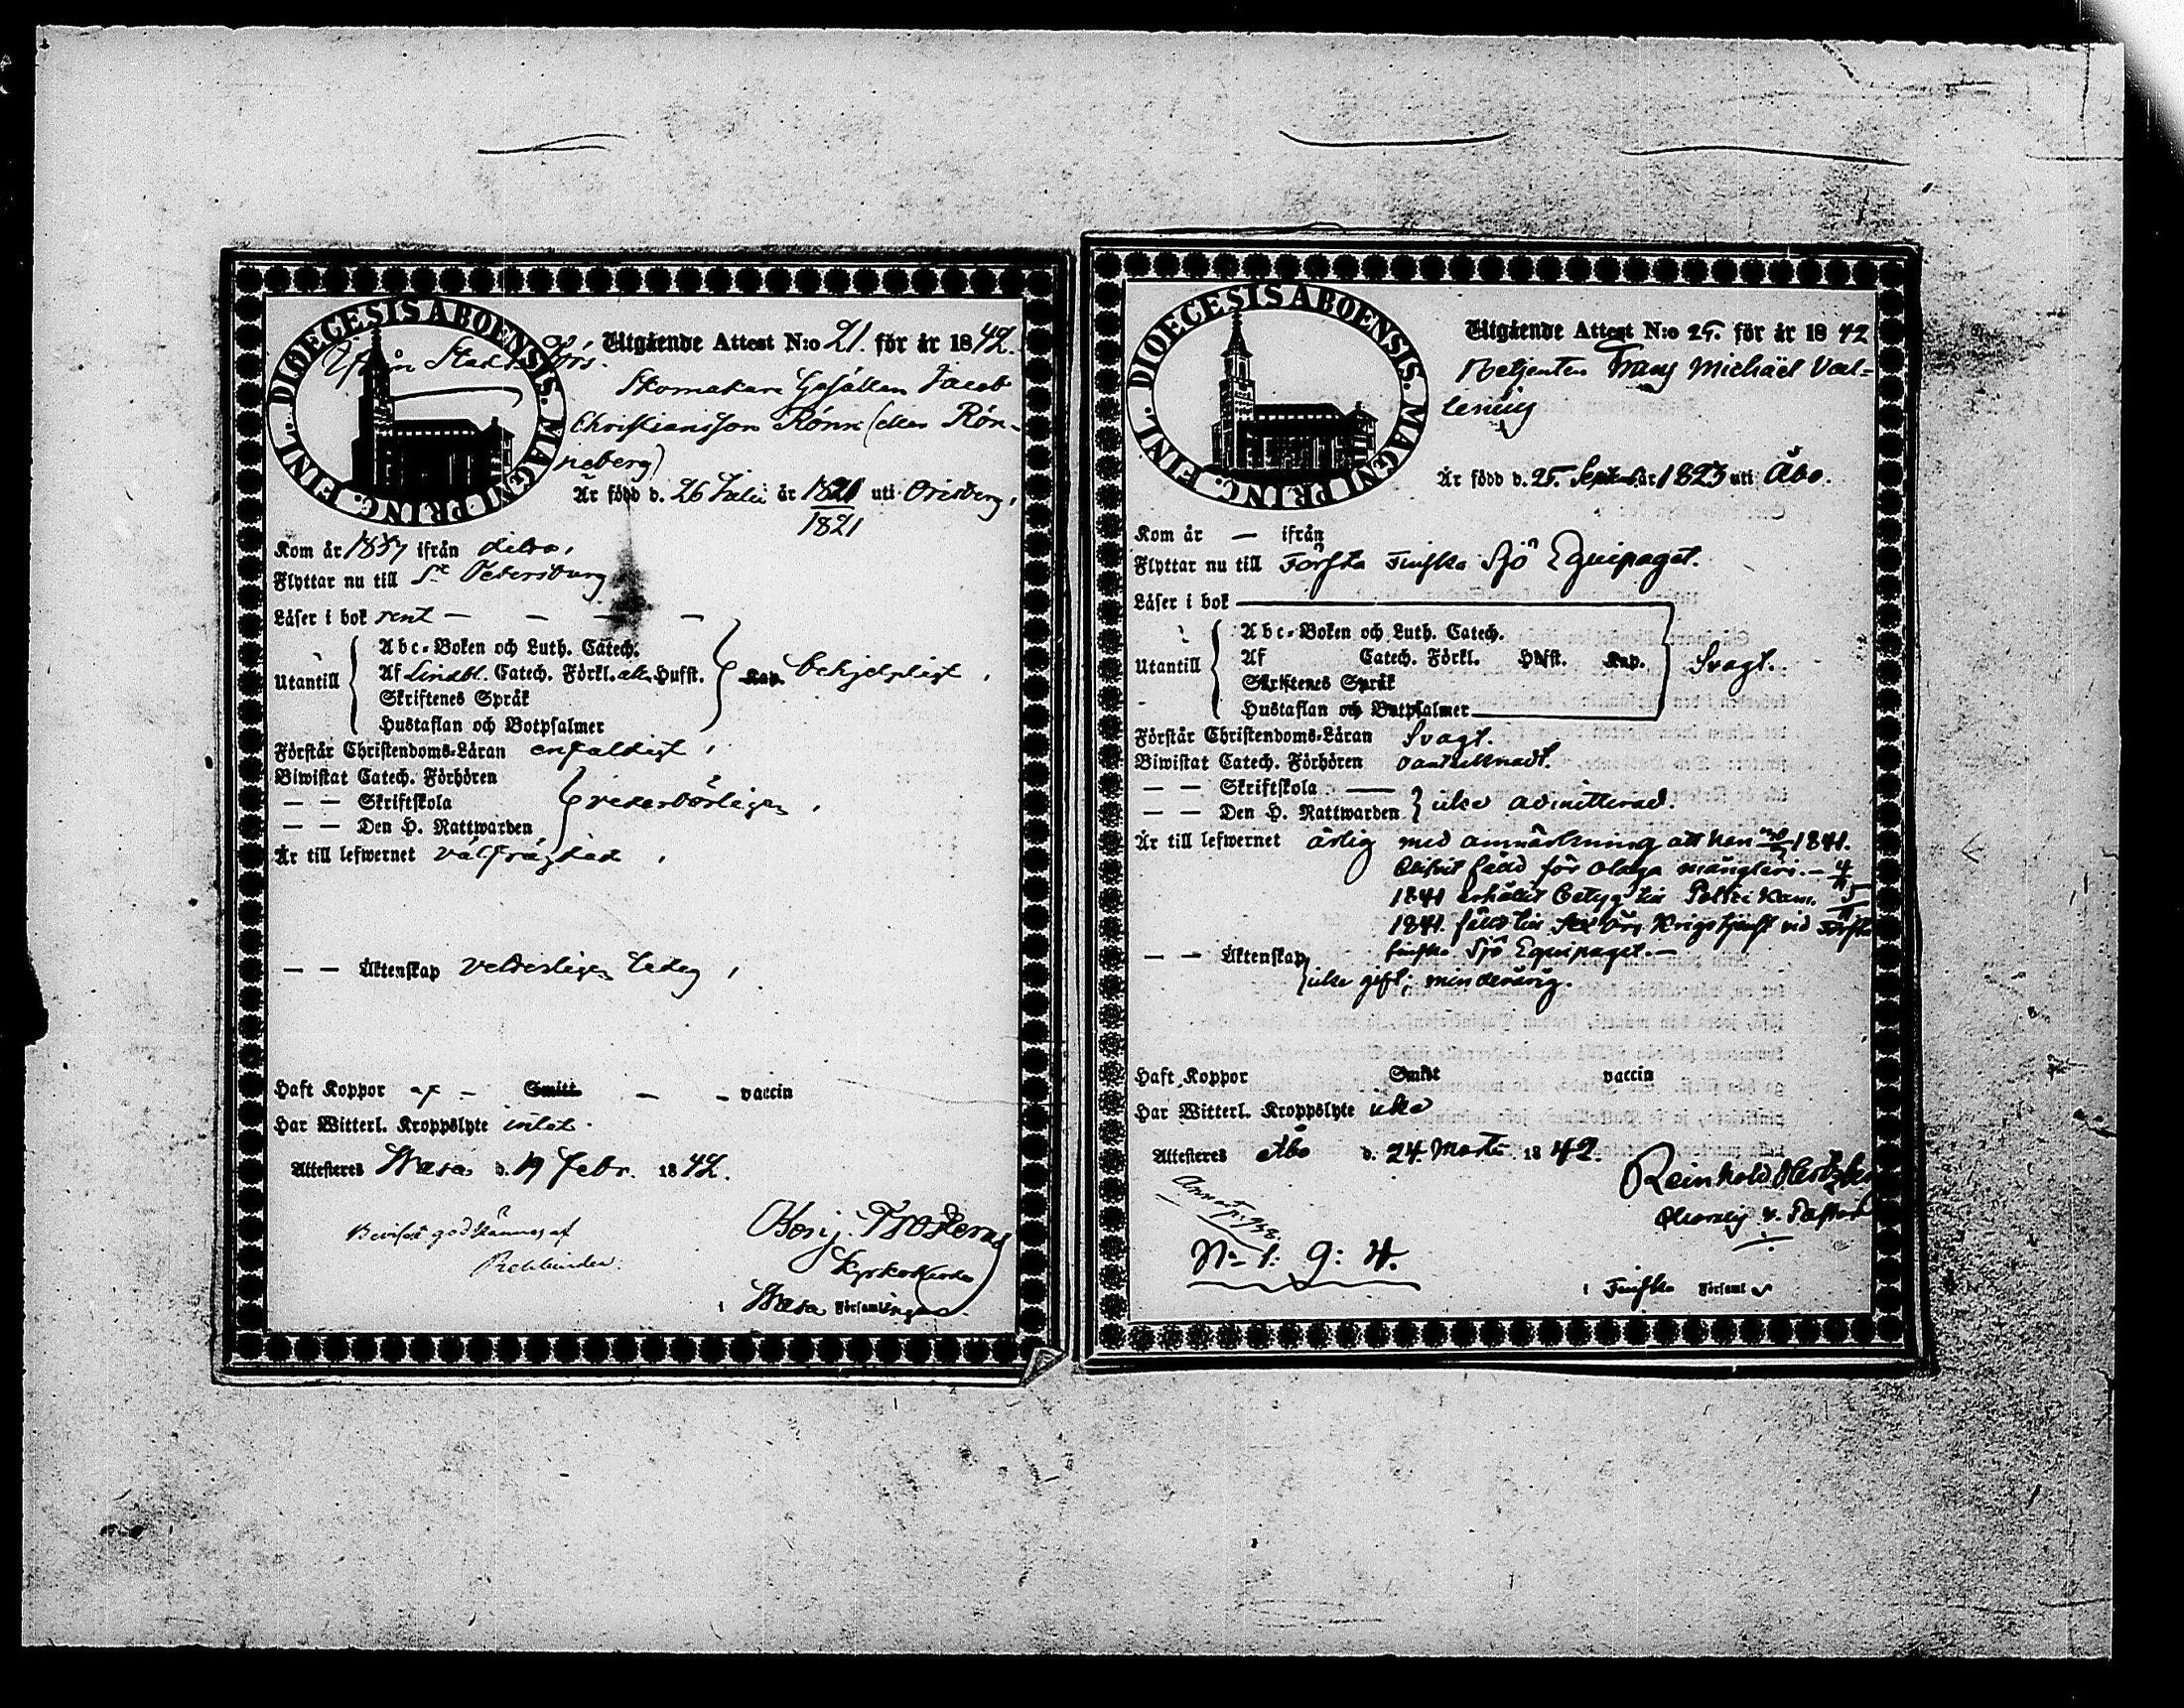 DIOECESIS ABOENSIS. MAGNI PRINC. FINL.
Utgående Attest N:o 21. för år 1842.
Skomakare Gesällen Jacob
Christiansson Rönn (eller Rön-
neberg)
Är född d. 26 Julii år 1821 uti Orisberg,
1821
Kom år 1837 ifrån
Flyttar nu till St Petersburg
Läser i bok rent — — — —
Utantill
Abc-Boken och Luth. Catech.
Af Lindbl. Catech. Förkl. alla Hufst. Kap. behjelpligt,
Skriftenes Språk
Hustaflan och Botpsalmer
Förstår Christendoms-Läran enfaldigt,
Biwistat Catech. Förhören
— — Skriftskola vederbörligen,
— — Den H. Nattwarden
Är till lefwernet välfrägdad,
— — Äktenskap veterligen ledig,
Haft Koppor af — Smitt — — vaccin
Har Witterl. Kroppslyte intet.
Attesteras Wasa d. 19 Febr. 1842.
Beviset godkännes af
Rehbinder.
Benj. Frosterus
Kyrkoherde
i Wasa Församlingar.
DIOECESIS ABOENSIS. MAGNI PRINC. FINL.
Utgående Attest N:o 25. för år 1842
Frans Michaël
Är född d. 25. Septemb. år 1823 uti Åbo.
Kom år — ifrån
Flyttar nu till Första Finska Sjö Equipaget.
Läser i bok
Utantill
Abc-Boken och Luth. Catech.
Af Catech. Förkl. Hufst. Kap. Svagt.
Skriftenes Språk
Hustaflan och Botpsalmer
Förstår Christendoms-Läran Svagt.
Biwistat Catech. Förhören oantecknadt.
— — Skriftskola —
— — Den H. Nattwarden icke admitterad.
Är till lefwernet ärlig med anmärkning att han 1841.
blifvit fälld för olaga mångleri. — 4/
1841 erhållit betyg till Politi Kam. 5/
1841. fälld till sex års Krigstjenst vid Första
finska Sjö Equipaget. —
— — Äktenskap
icke gift; minderårig.
Haft Koppor Smitt vaccin
Har Witterl. Kroppslyte icke
Attesteras Åbo d. 24 Martii 1842.
Reinhold
v. Pastor
N:o 1: 9: 4.
i Finska Församl